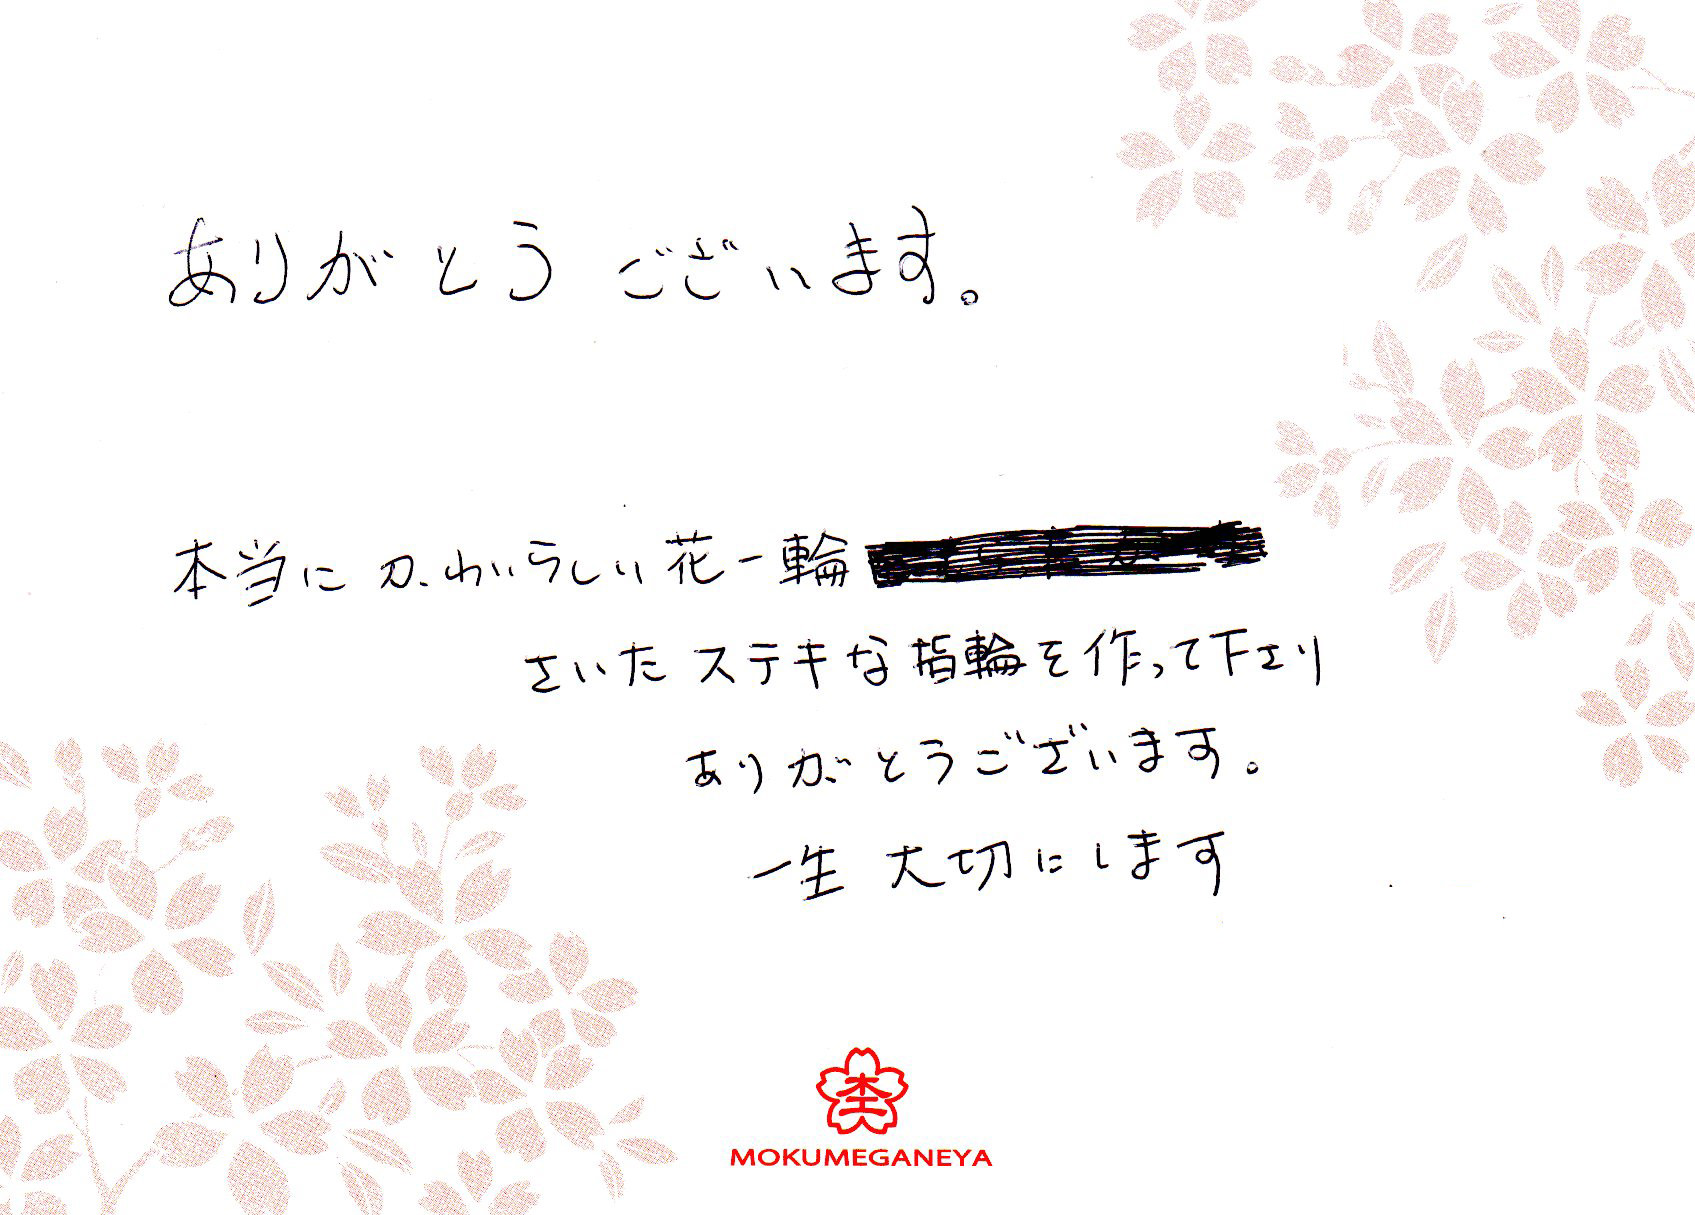 ありがとうございます。
本当にかわいらしい花一輪
さいたステキな指輪を作って下さり
ありがとうございます。
一生大切にします
MOKUMEGANEYA